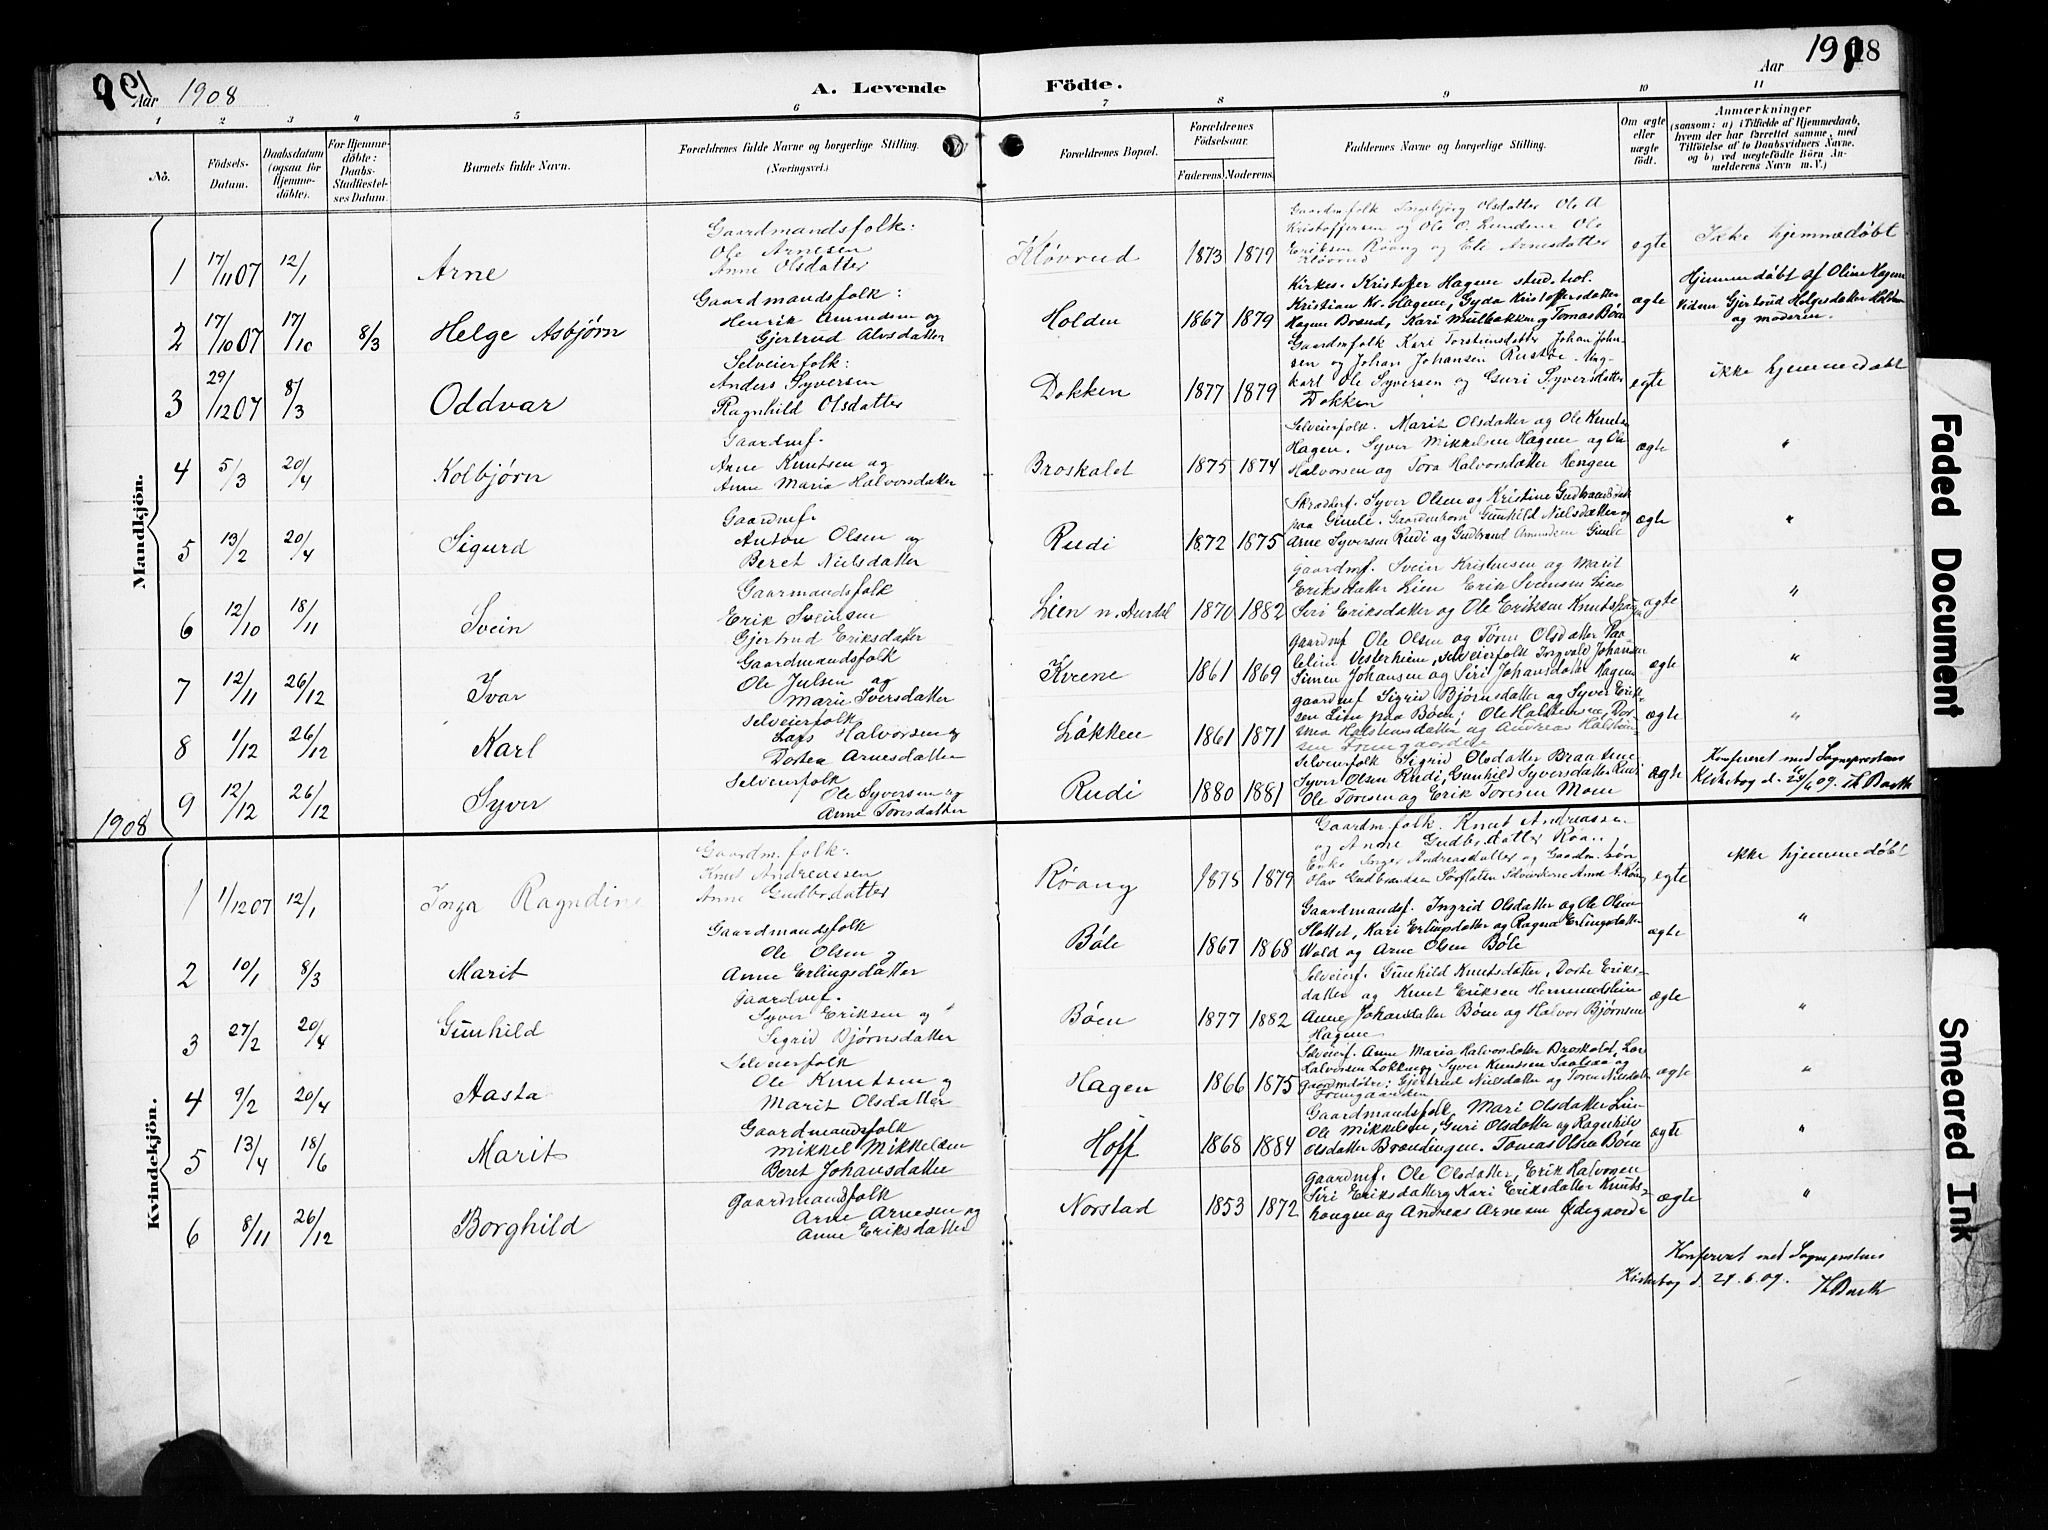 Aar 1908
A. Levende Födte.
Aar 190
18
1 2 3 4 5 6 7 8 9 10 11
No.
Födsels-Datum.
Daabsdatum (ogsaa for Hjemmedöbte).
For Hjemmedöbte: Daabs-Stadfæstelses Datum.
Barnets fulde Navn.
Forældrenes fulde Navne og borgerlige Stilling. (Næringsvei.)
Forældrenes Bopæl.
Forældrenes Födselsaar.
Faderens. Moderens.
Faddernes Navne og borgerlige Stilling.
Om ægte eller uægte födt.
Anmærkninger
(saasom: a) i Tilfælde af Hjemmedaab, hvem der har forrettet samme, med Tilföielse af to Daabsvidners Navne, og b) ved uægtefödte Börn Anmelderens Navn m. V.)
Mandkjön.
1 17/11 07 12/1 Arne
Gaardmandsfolk:
Ole Arnesen
Anne Olsdatter
Kløvrud 1873 1879
Gaardmfolk Ingebjörg Olsdatter Ole A
Kristoffersen og Ole O. Lundene Ole
Eriksen Røang og Eli Arnesdatter
Kløvrud
egte
Ikke hjemmedøbt
2 17/10 07 17/10 8/3 Helge Asbjørn
Gaardmandsfolk:
Henrik Amundsen og
Gjertrud Alvsdatter
Holden 1867 1879
Kirkes. Kristoffer Hagene stud. teol.
Kristian Kr. Hagene, Gyda Kristoffersdatter
Hagene Brænd, Kari Mülbakken og Tomas Böen
ægte
Hjemmedøbt af Oline Hagene
Vidner Gjertrud Helgesdatter Holden
og moderen.
3 29/12 07 8/3 Oddvar
Selveierfolk:
Anders Syversen
Ragnhild Olsdatter
Dokken 1877 1879
Gaardmfolk Kari Torsteinsdatter Johan Johansen
og Johan Johansen Rustøe. Ungkarl
Ole Syversen og Guri Syversdatter
Dokken
egte
ikke hjemmedøbt
4 5/3 20/4 Kolbjørn
Gaardmf.
Arne Knutsen og
Anne Maria Halvorsdatter
Broskalet 1875 1874
Selveierfolk. Marit Olsdatter og Ole Knutsen
Hagen. Syver Mikkelsen Hagene og
Halvorsen og Tora Halvorsdatter Hengen
ægte
"
5 13/2 20/4 Sigurd
Gaardmf.
Anton Olsen og
Beret Nielsdatter
Rudi 1872 1875
Skrædderf. Syver Olsen og Kristine Gudbrandsdatter
paa Ginle. Gaardmbørn Gunhild Nielsdatter og
Arne Syversen Rudi og Gudbrand Amundsen Ginle
ægte
"
6 12/10 18/11 Svein
Gaarmandsfolk
Erik Sveinsen
Gjertrud Eriksdatter
Lien n. Aurdal 1870 1882
gaardmf. Svein Kristensen og Marit
Eriksdatter Lien Erik Svensen Liene
Siri Eriksdatter og Ole Eriksen
ægte
"
7 12/11 26/12 Ivar
Gaardmandsfolk
Ole Julsen og
Marie Iversdatter
Kvene 1861 1869
gaardmf Ole Olsen og Tøren Olsdatter
Vesterheim, selveierfolk Torgvald Johansen
Simen Johansen og Siri Johansdatter Hagene
ægte
"
8 1/12 26/12 Karl
selveierfolk
Lars Halvorsen og
Dortea Arnesdatter
Løkken 1861 1871
gaardmf Sigrid Bjørnsdatter og Syver Eriksen
Lien paa Bøen, Ole Halstensen,
Halstensdatter og Andreas Halstensen
Framgaarden
ægte
"
9 12/12 26/12 Syver
Selveierfolk
Ole Syversen og
Anne Toresdatter
Rudi 1880 1881
Selveierfolk Sigrid Olsdatter Braatene
Syver Olsen Rudi, Gunhild Syversdatter Rudi
Ole Toresen og Erik Toresen Moen
ægte
Konfereret med Sogneprestens
Kirkebog d. 25/6 09. Th Barth
1908
Kvindekjön.
1 1/12 07 12/1 Inga Ragndine
Gaardm. folk:
Knut Andreassen
Anne Gudbrdatter
Røang 1878 1879
Gaardm.folk. Knut Andreassen
og Anne Gudbrdatter Røang
Enke Inger Andreasdatter og Gaardm. søn
Olav Gudbrandsen Sørflaten
egte
ikke hjemmedøbt
2 10/1 8/3 Marit
Gaardmandsfolk
Ole Olsen og
Anne Erlingsdatter
Bøle 1867 1868
Gaardmandsf. Ingrid Olsdatter og Ole Olsen
Slottet, Kari Erlingsdatter og Ragna Erlingsdatter
Wold og Arne Olsen Bøle
ægte
"
3 27/2 20/4 Gunhild
Gaardmf.
Syver Eriksen og
Sigrid Bjørnsdatter
Bøen 1877 1882
Selveierf. Gunhild Knutsdatter, Dorte Eriksdatter
og Knut Eriksen
Anne Johansdatter Bøen og Halvor Bjørnsen
Hagene
ægte
"
4 9/2 20/4 Aasta
Selveierfolk
Ole Knutsen og
Marit Olsdatter
Hagen 1866 1875
Selveierf. Anne Maria Halvorsdatter Broskalet, Lars
Halvorsen Løkken og Syver Knutsen Saalsaa og
Gaardmdøtre: Gjertrud Nielsdatter og Toren Nielsdatter
Framgaarden
ægte
"
5 13/4 18/6 Marit
Gaardmandsfolk
Mikkel Mikkelsen
Beret Johansdatter
Hoff 1868 1884
Gaardmandsfolk, Mari Olsdatter Lien
Ole Mikkelsen, Guri Olsdatter og Ragnhild
Olsdatter Brændingen. Tomas Olsen Bøen
ægte
"
6 8/11 26/12 Borghild
Gaardmandsfolk
Arne Arnesen og
Anne Eriksdatter
Norstad 1853 1872
gaardmf. Ole Olsdatter, Erik Halvorsen
Siri Eriksdatter og Kari Eriksdatter
og Andreas Arnesen Ødegaarden
ægte
"
Konfereret med Sogneprestens
Kirkebog d. 25.6.09. Th Barth
Faded Document
Smeared Ink